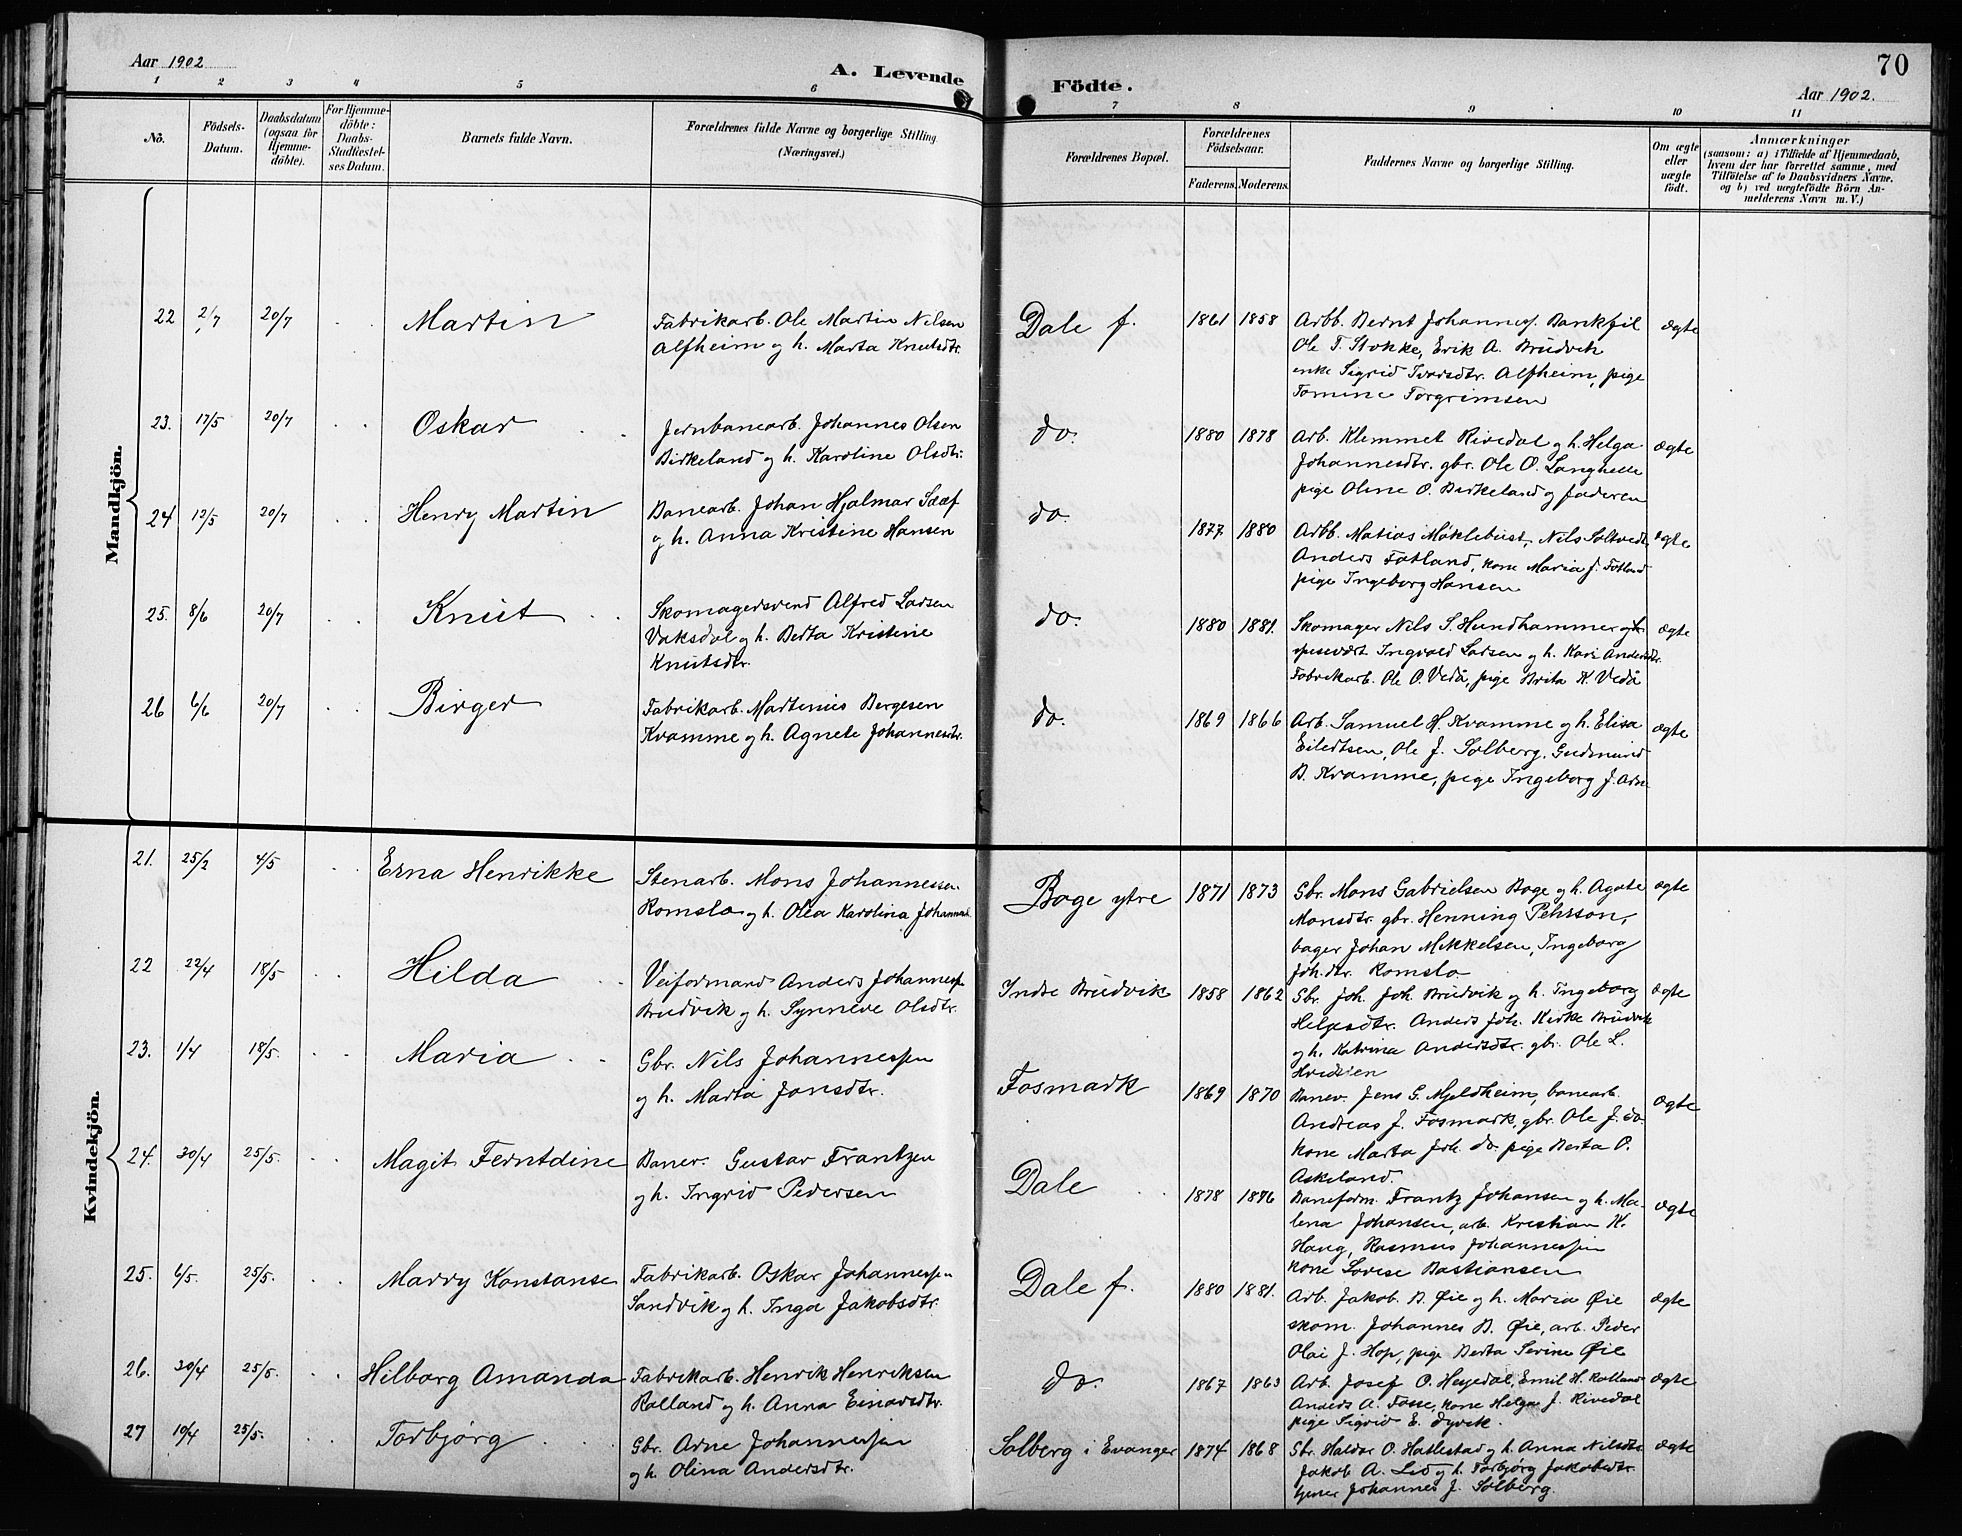 Aar 1902
A. Levende
Födte.
70
Aar 1902.
1 2 3 4 5 6 7 8 9 10 11
No.
Födsels-
Datum.
Daabsdatum
(ogsaa for
Hjemme-
döbte).
For Hjemme-
döbte:
Daabs-
Stadfæstel-
ses Datum.
Barnets fulde Navn.
Forældrenes fulde Navne og borgerlige Stilling
(Næringsvei.)
Forældrenes Bopæl.
Forældrenes
Födselsaar.
Faderens. Moderens.
Faddernes Navne og borgerlige Stilling.
Om ægte
eller
uægte
födt.
Anmærkninger
(saasom: a) i Tilfælde af Hjemmedaab,
hvem der har forrettet samme, med
Tilföielse af to Daabsvidners Navne.
og b) ved uægtefödte Börn An-
melderens Navn m. V.)
Mandkjön.
22 2/7 20/7 Martin
Fabrikarb. Ole Martin Nilsen
Alfheim og h. Marta Knutsdtr.
Dale f. 1861 1858
Arbb. Bernt Johannes. Bankfil
Ole T. Stokke, Erik A. Brüdvik
enke Sigrid Ivarsdtr. Alfheim, pige
Tomine Torgrimsen
ægte
23. 17/5 20/7 Oskar
Jernbanearb. Johannes Olsen
Birkeland og h. Karoline Olsdtr.
do. 1880 1878
Arb. Klemmet Rivedal og h. Helga
Johannesdtr. gbr. Ole O. Langhelle
pige Oline O. Birkeland og faderen
ægte
24 13/5 20/7 Henry Martin
Banearb. Johan Hjalmar
og h. Anna Kristine Hansen
do. 1877 1880
Arbb. Matias Möklebust, Nils
Anders Fotland, kone Maria J. Fotland
pige Ingeborg Hansen
ægte
25. 8/6 20/7 Knut
Skomagersvend Alfred Larsen
Vaksdal og h. Berta Kristine
Knutsdtr.
do. 1880 1881.
Skomager Nils S. Hundhammer og h.
spisevært Ingvald Larsen og h. Kari Andersdtr.
Fabrikarb. Ole O. Vedå, pige Brita K. Vedå
ægte
26 6/6 20/7 Birger
Fabrikarb. Martinius Bergesen
Kvamme og h. Agnete Johannesdtr.
do. 1869 1866
Arb. Samuel H. Kvamme og h. Elisa
Eilertsen, Ole J. Solberg, Gudmund
B. Kvamme, pige Ingeborg J.
ægte
Kvindekjön.
21. 25/2 4/5 Erna Henrikke
Stenarb. Mons Johannessen
Romslo og h. Olea Karolina
Boge ytre 1871 1873
Gbr. Mons Gabrielsen Boge og h. Agate
Monsdtr. gbr. Henning Pehsson,
bager Johan Mikkelsen, Ingeborg
Joh.dtr. Romslo
ægte
22 22/4 18/5 Hilda
Veiformand Anders Johannessen
Brüdvik og h. Synneve Olsdtr.
Indre Brüdvik 1858 1862
Gbr. Joh. Joh. Brüdvik og h. Ingeborg
Helgesdtr. Anders Joh. Kirke Brüdvik
og h. Katrina Andersdtr. gbr. Ole L.
ægte
23. 1/4 18/5. Maria
Gbr. Nils Johannessen
og h. Marta Jonsdtr.
Fosmark 1869 1870
Banev. Jens G. Mjeldheim, banearb.
Andreas J. Fosmark, gbr. Ole J. do.
kone Marta Joh. do. pige Berta O.
Askeland.
ægte
24. 30/4 25/5. Magit Ferntdine
Banev. Gustav Frantzen
og h. Ingrid Pedersen
Dale 1878 1876
Baneform. Frantz Johansen og h. Ma-
lena Johansen, arb. Kristian K.
Haug, Rasmus Johannessen
kone Lovise Bastiansen
ægte
25. 6/5. 25/5. Marry Konstanse
Fabrikarb. Oskar Johannessen
Sandvik og h. Inga Jakobsdtr.
Dale f. 1880 1881.
Arb. Jakob B. Øie og h. Maria Øie
skom. Johannes B. Øie, arb. Peder
Olai J. Hop, pige Berta Serine Øie
ægte
26. 30/4 25/5. Hilborg Amanda
Fabrikarb. Henrik Henriksen
Rolland og h. Anna Einarsdtr.
do. 1867 1863
Arb. Josef O. Heyedal, Emil H. Rolland
Anders A. Fosse, kone Helga J. Rivedal
pige Sigrid E. Dyvik.
ægte
27 10/4 25/5. Torbjørg
Gbr. Arne Johannessen
og h. Olina Andersdtr.
Solberg i Evanger 1874 1868
Gbr. Haldor O. Hatlestad og h. Anna Nilsdtr.
Jakob A. Lid og h. Torbjørg Jakobsdtr.
tjener Johannes J. Solberg.
ægte